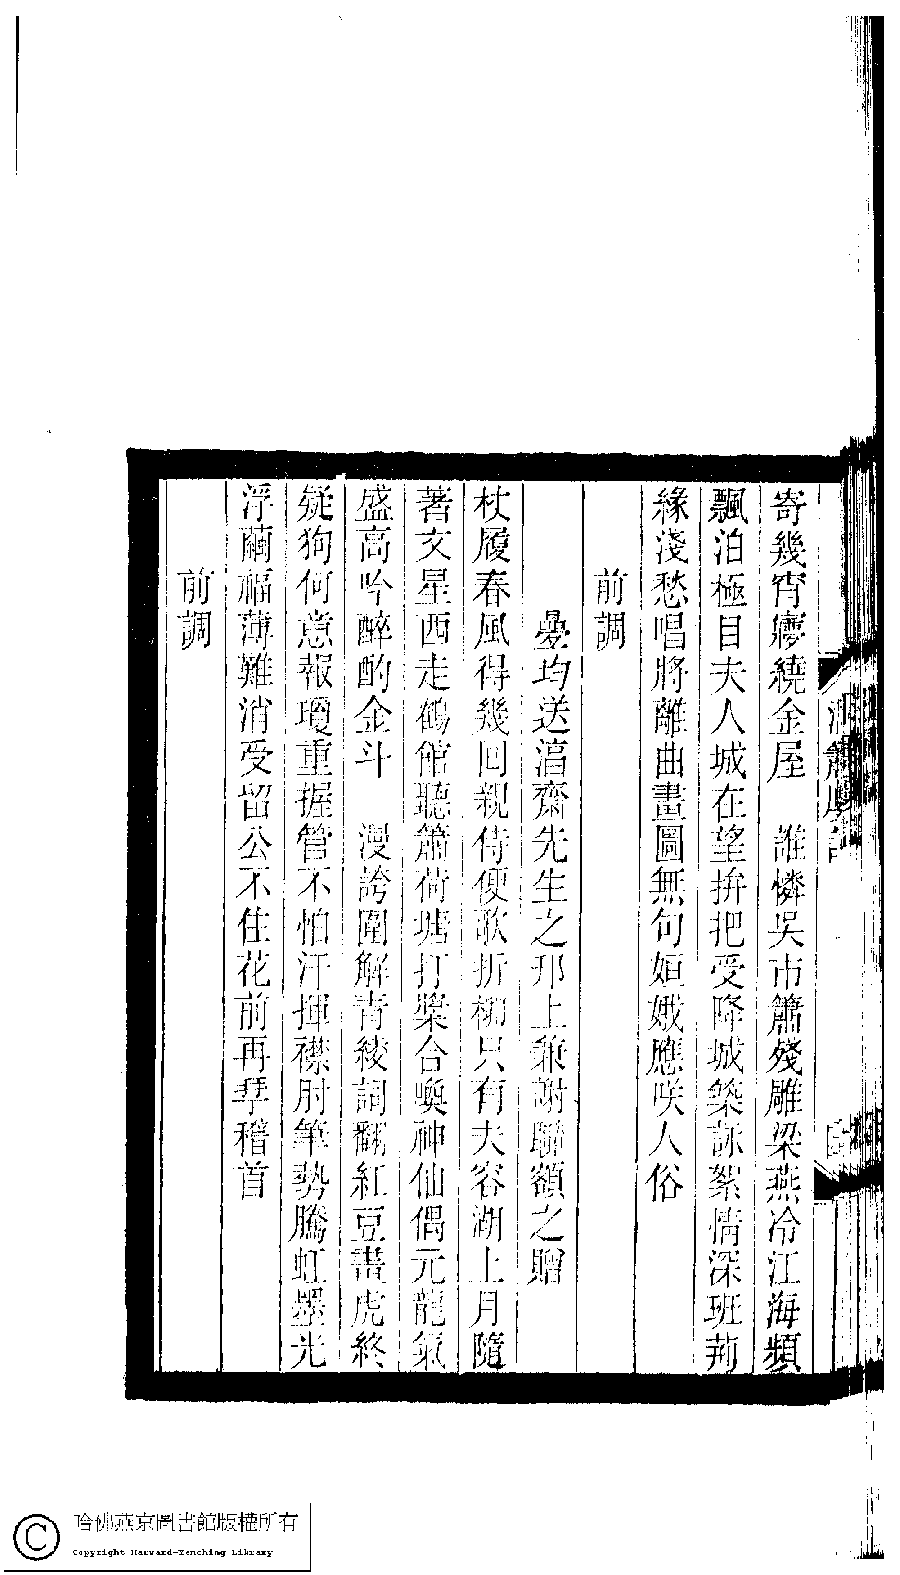 寄幾宵㝱繞金屋　誰憐吳市簫殘雕梁燕冷江海頻
飄泊極目夫人城在望拚把受降城築詠絮情深班荊
緣淺愁唱將離曲畫圖無句姮娥應咲人俗
前調
疊均送滀齋先生之邗上兼謝聯額之贈
杖履春風得幾回親侍便歌折柳只有夫容湖上月隨
著文星西走鶴館聽簫荷塘打槳合喚神仙偶元龍氣
盛高吟醉酌金斗　漫誇圍解青綾詞翻紅豆畫虎終
疑狗何意報瓊重握管不怕汗揮襟肘筆勢騰虹墨光
浮繭福薄難消受留公不住花前再拜稽首
前調
哈佛燕京圖書館版權所有
Copyright Harvard-Yenching Library